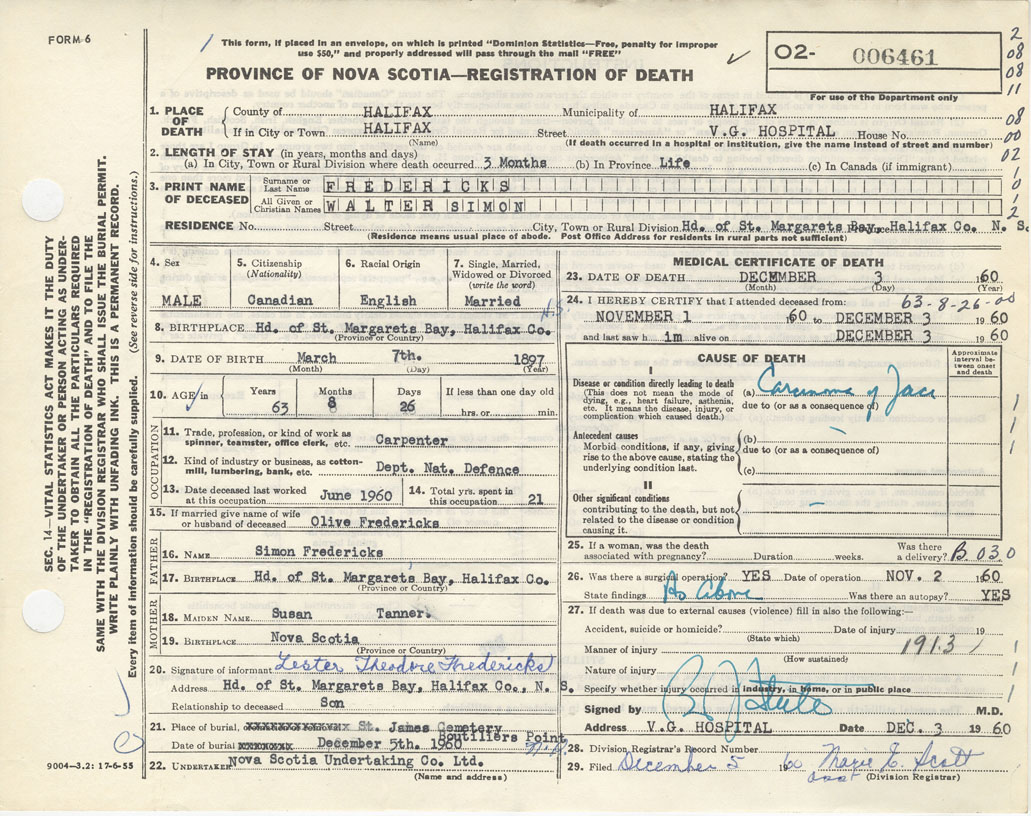 FORM 6
This form, if placed in an envelope, on which is printed "Dominion Statistics—Free, penalty for improper
use $50," and properly addressed will pass through the mail "FREE"
PROVINCE OF NOVA SCOTIA—REGISTRATION OF DEATH
O2- 006461
For use of the Department only
2
08
08
11
08
00
02
1
0
1
2
SEC. 14—VITAL STATISTICS ACT MAKES IT THE DUTY
OF THE UNDERTAKER OR PERSON ACTING AS UNDER-
TAKER TO OBTAIN ALL THE PARTICULARS REQUIRED
IN THE "REGISTRATION OF DEATH" AND TO FILE THE
SAME WITH THE DIVISION REGISTRAR WHO SHALL ISSUE THE BURIAL PERMIT.
WRITE PLAINLY WITH UNFADING INK. THIS IS A PERMANENT RECORD.
Every item of information should be carefully supplied. (See reverse side for instructions.)
1. PLACE OF DEATH
County of HALIFAX Municipality of HALIFAX
If in City or Town HALIFAX Street V.G. HOSPITAL House No.
(Name) (If death occurred in a hospital or institution, give the name instead of street and number)
2. LENGTH OF STAY (in years, months and days)
(a) In City, Town or Rural Division where death occurred 3 Months (b) In Province Life (c) In Canada (if immigrant)
3. PRINT NAME OF DECEASED
Surname or Last Name FREDERICKS
All Given or Christian Names WALTER SIMON
RESIDENCE No. Street City, Town or Rural Division Hd. of St. Margarets Bay, Halifax Co. N. S.
(Residence means usual place of abode. Post Office Address for residents in rural parts not sufficient)
4. Sex MALE
5. Citizenship (Nationality) Canadian
6. Racial Origin English
7. Single, Married, Widowed or Divorced (write the word) Married
8. BIRTHPLACE Hd. of St. Margarets Bay, Halifax Co. N.S.
(Province or Country)
9. DATE OF BIRTH March 7th. 1897
(Month) (Day) (Year)
10. AGE in Years 63 Months 8 Days 26 If less than one day old hrs. or min.
OCCUPATION
11. Trade, profession, or kind of work as spinner, teamster, office clerk, etc. Carpenter
12. Kind of industry or business, as cotton-mill, lumbering, bank, etc. Dept. Nat. Defence
13. Date deceased last worked at this occupation June 1960
14. Total yrs. spent in this occupation 21
15. If married give name of wife or husband of deceased Olive Fredericks
FATHER
16. NAME Simon Fredericks
17. BIRTHPLACE Hd. of St. Margarets Bay, Halifax Co.
(Province or Country)
MOTHER
18. MAIDEN NAME Susan Tanner.
19. BIRTHPLACE Nova Scotia
(Province or Country)
20. Signature of informant Lester Theodore Fredericks
Address Hd. of St. Margarets Bay, Halifax Co., N. S.
Relationship to deceased Son
21. Place of burial, St. James Cemetery
Boutiliers Point
Date of burial December 5th. 1960
22. UNDERTAKER Nova Scotia Undertaking Co. Ltd.
(Name and address)
9004—3.2: 17-6-55
MEDICAL CERTIFICATE OF DEATH
23. DATE OF DEATH DECEMBER 3 1960
(Month) (Day) (Year)
24. I HEREBY CERTIFY that I attended deceased from: 63-8-26-00
NOVEMBER 1 60 to DECEMBER 3 1960
and last saw him alive on DECEMBER 3 1960
CAUSE OF DEATH
Approximate interval between onset and death
I
Disease or condition directly leading to death
(This does not mean the mode of dying, e.g., heart failure, asthenia, etc. It means the disease, injury, or complication which caused death.)
(a)
due to (or as a consequence of)
Antecedent causes
Morbid conditions, if any, giving rise to the above cause, stating the underlying condition last.
(b)
due to (or as a consequence of)
(c)
II
Other significant conditions
contributing to the death, but not related to the disease or condition causing it.
25. If a woman, was the death associated with pregnancy? Duration weeks. Was there a delivery? B 030
26. Was there a surgical operation? YES Date of operation NOV. 2 1960
State findings As Above Was there an autopsy? YES
27. If death was due to external causes (violence) fill in also the following:—
Accident, suicide or homicide? Date of injury 19
(State which)
Manner of injury 1913
(How sustained)
Nature of injury
Specify whether injury occurred in industry, in home, or in public place
Signed by M.D.
Address V.G. HOSPITAL Date DEC. 3 1960
28. Division Registrar's Record Number
29. Filed December 5 1960 Marie E. Scott
asst (Division Registrar)